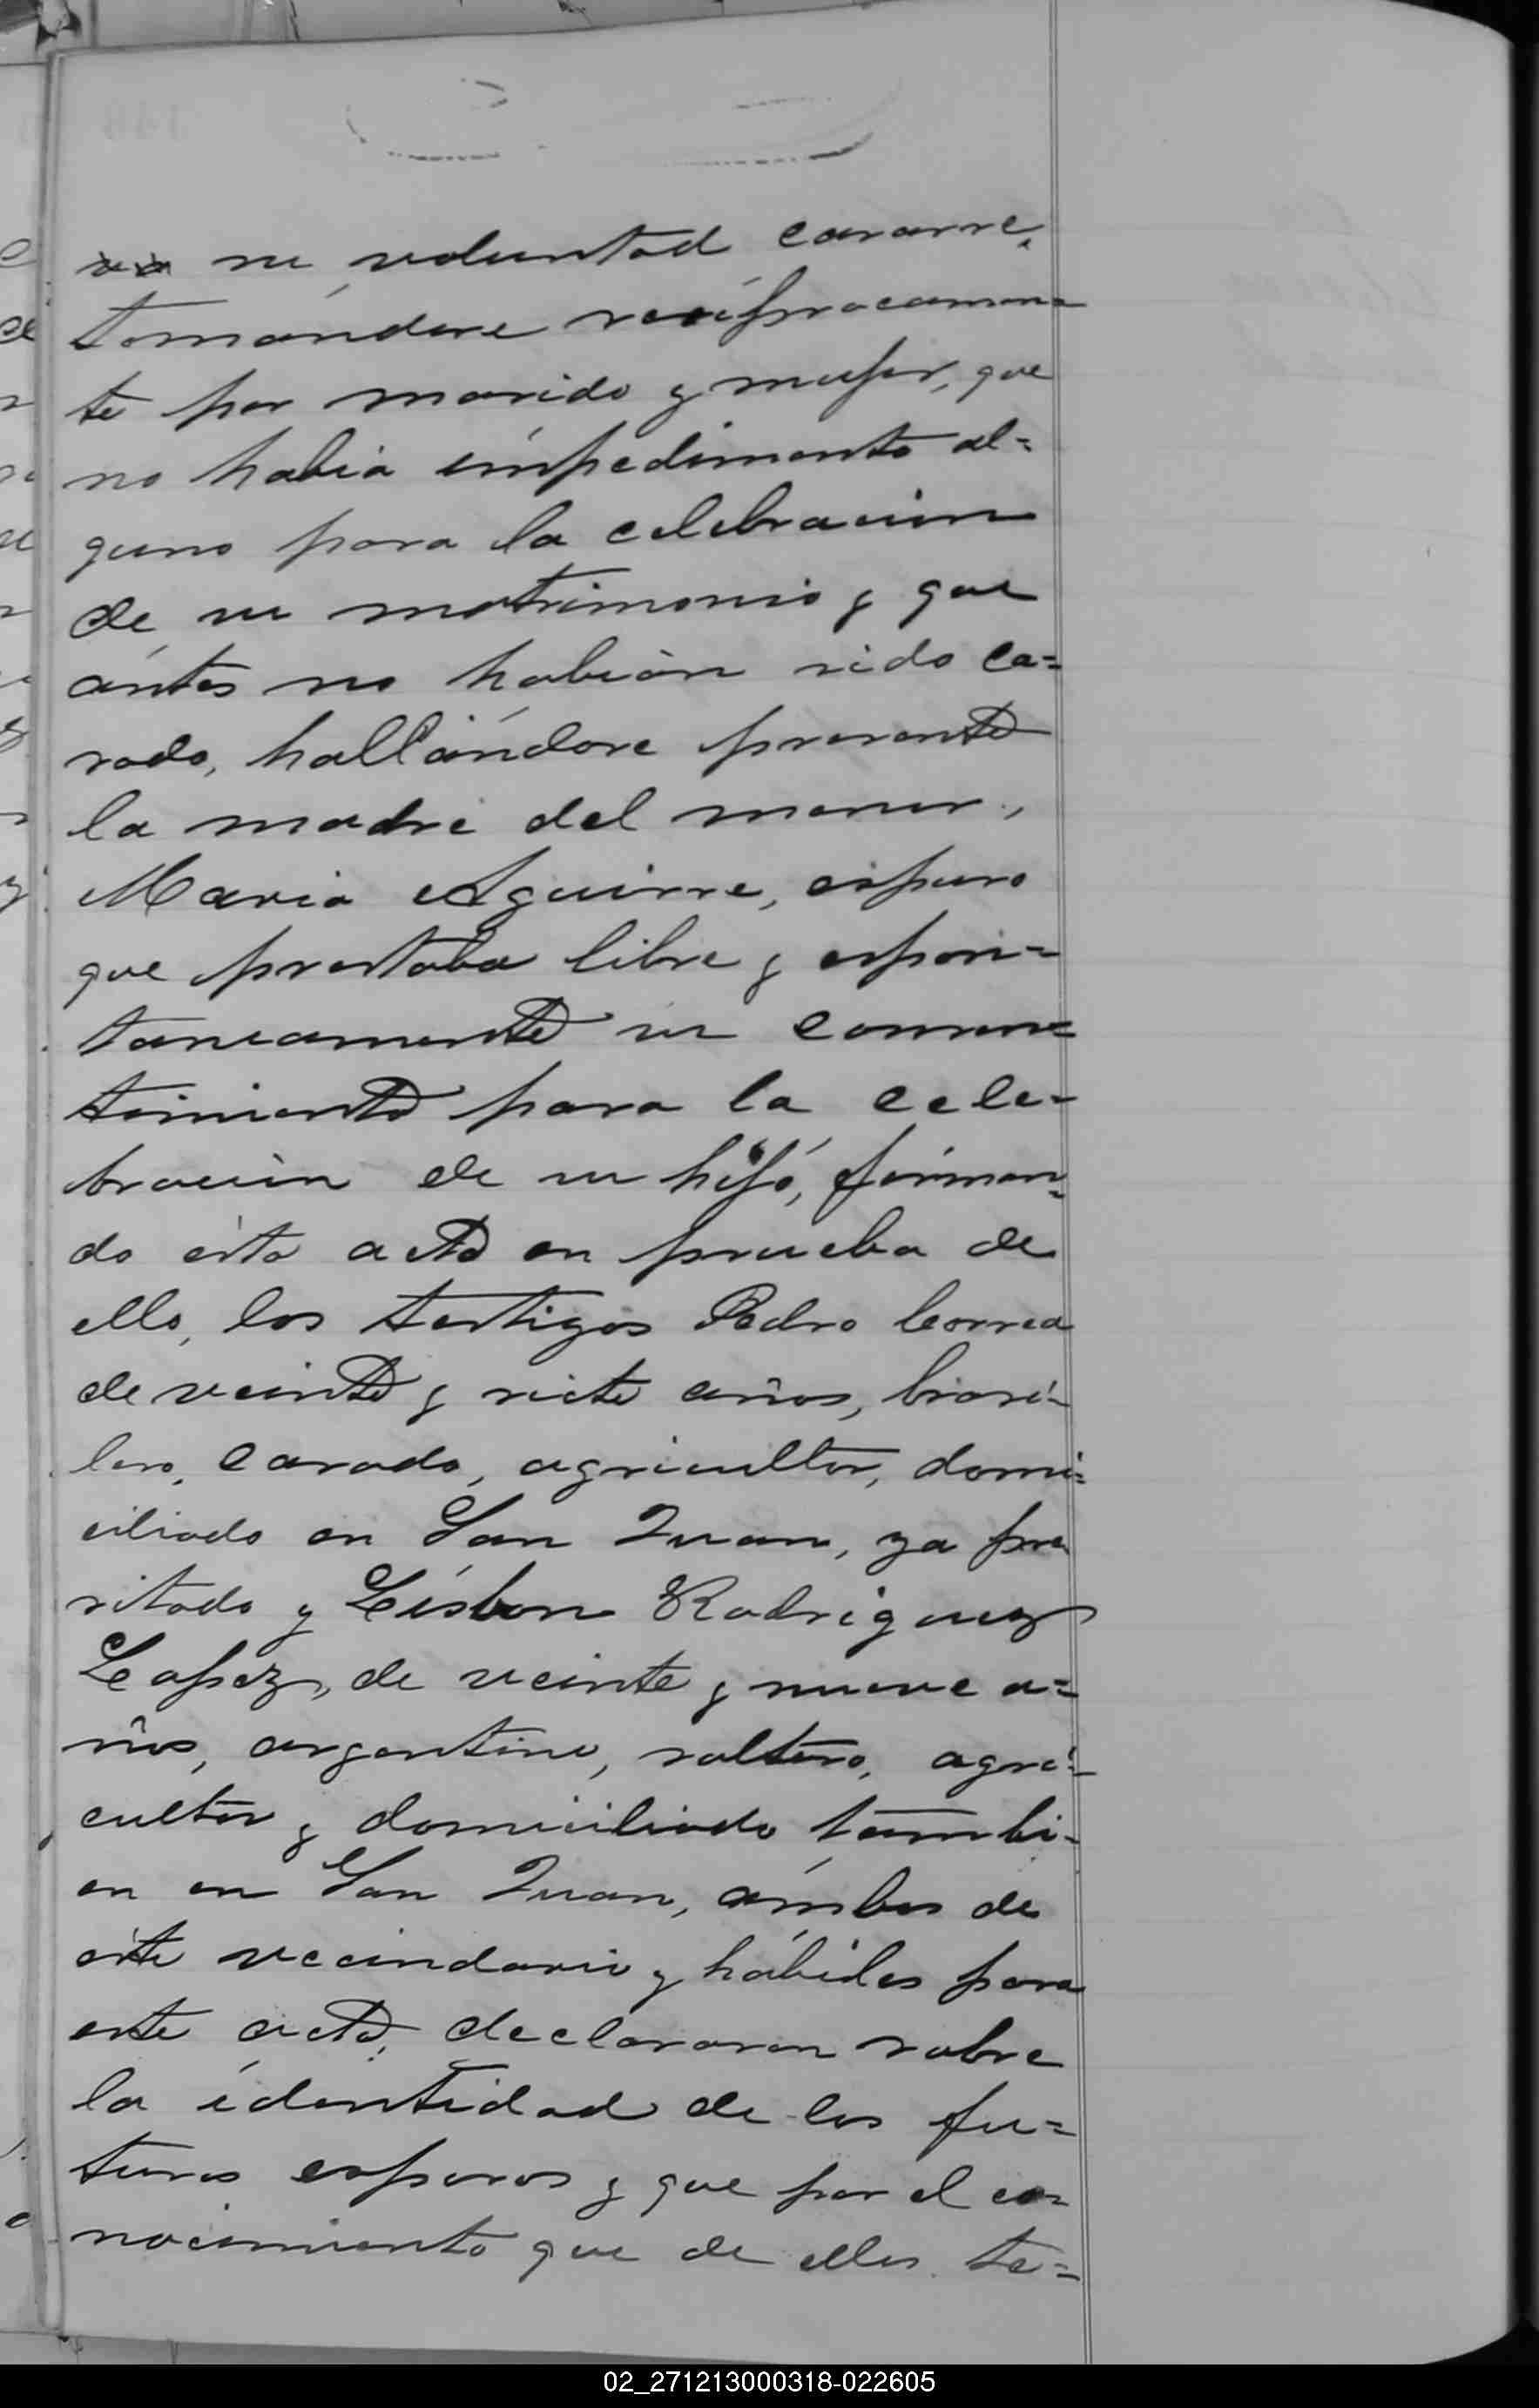 su voluntad casarse,
tomándose recíprocamen=
te por marido y mujer, que
no había impedimento al=
guno para la celebracion
de su matrimonio y que
ántes no habian sido ca=
sado, hallándose presente
la madre del menor,
Maria Aguirre, espuso
que prestaba libre y espon=
taneamente su consen=
timiento para la cele=
bracion de su hijo, firman=
do ésta acta en prueba de
ello, los testigos Pedro Correa
de veinte y siete años, brasi=
lero, casado, agricultor, domi=
ciliado en San Juan, ya pre
citado y Lisbon Rodriguez
Lopez, de veinte y nueve a=
ños, argentino, soltero, agri=
cultor y domiciliado tambi=
en en San Juan, ámbos de
éste vecindario y hábiles para
este acto, declararon sobre
la identidad de los fu=
turos esposos y que por el co=
nocimiento que de ellos te=
02_271213000318-022605